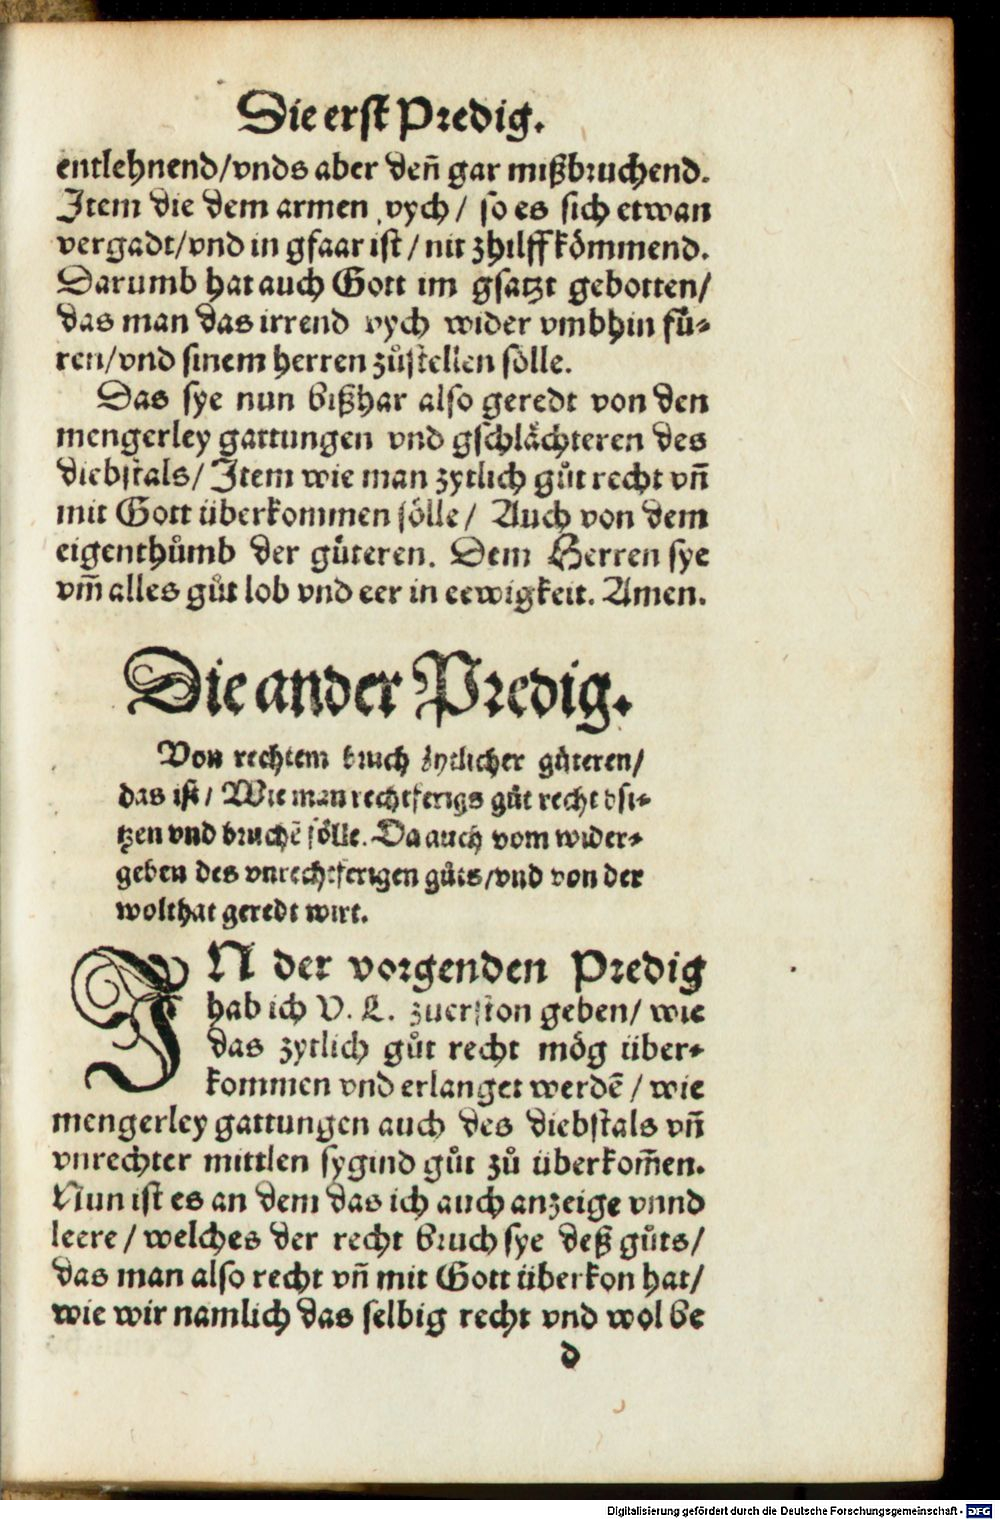 Die erst Predig.
entlehnend/vnds aber deñ gar mißbruchend.
Item die dem armen vych/ so es sich etwan
vergadt/vnd in gfaar ist/nit zhilff kömmend.
Darumb hat auch Gott im gsatzt gebotten/
das man das irrend vych wider vmbhin fuͤ-
ren/vnd sinem herren zůstellen sölle.
Das sye nun bißhar also geredt von den
mengerley gattungen vnd gschlächteren des
diebstals/ Item wie man zytlich gůt recht vñ
mit Gott überkommen sölle/ Auch von dem
eigenthůmb der guͤteren. Dem Herren sye
vm̃ alles gůt lob vnd eer in eewigkeit. Amen.
Die ander Predig.
Von rechtem bruch zytlicher guͤteren/
das ist/ Wie man rechtferigs gůt recht bsi-
tzen vnd bruchẽ sölle. Da auch vom wider-
geben des vnrechtferigen gůts/vnd von der
wolthat geredt wirt.
IN der vorgenden Predig
hab ich V. L. zuerston geben/ wie
das zytlich gůt recht mög über-
kommen vnd erlanget werdẽ/ wie
mengerley gattungen auch des diebstals vñ
vnrechter mittlen sygind gůt zů überkom̃en.
Nun ist es an dem das ich auch anzeige vnnd
leere/ welches der recht bruch sye deß gůts/
das man also recht vñ mit Gott überkon hat/
wie wir namlich das selbig recht vnd wol be
d
Digitalisierung gefördert durch die Deutsche Forschungsgemeinschaft - DFG